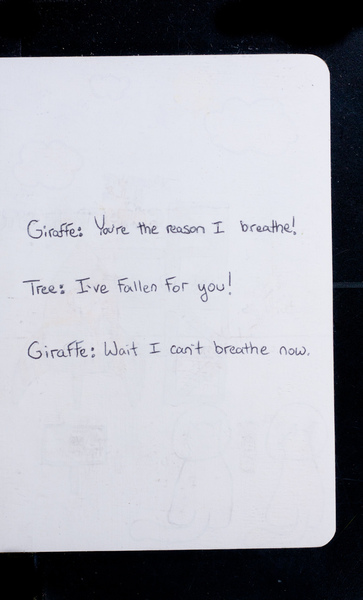 Giraffe: You're the reason I breathe!
Tree: I've Fallen For you!
Giraffe: Wait I can't breathe now.